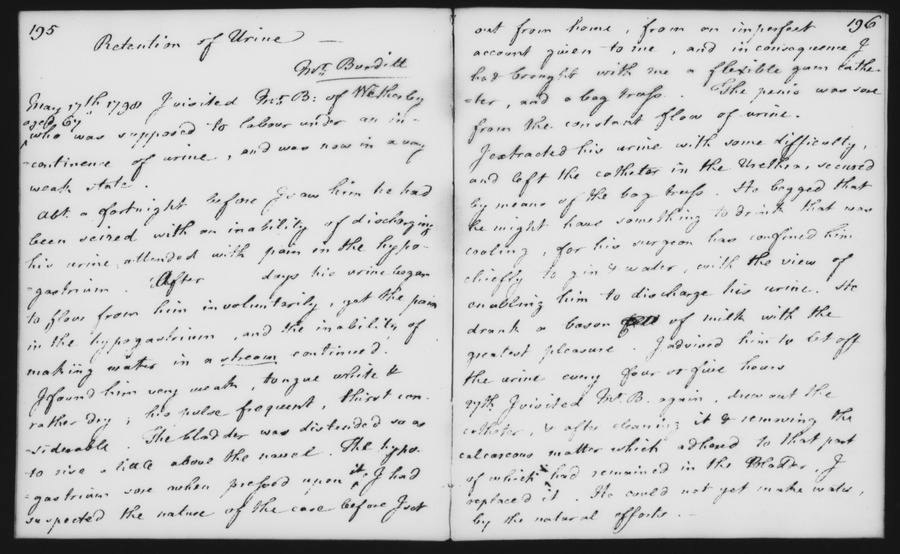 195
Retention of Urine —
Mr. Burditt
May 17th 1798 I visited Mr. B: of Wetherby
aged 67
who was supposed to labour under an in-
-continence of urine, and was now in a very
weak state.
Abt. a fortnight before I saw him he had
been seized with an inability of discharging
his urine, attended with pain in the hypo-
-gastrium. After days his urine began
to flow from him involuntarily, yet the pain
in the hypogastrium, and the inability of
making water in a stream continued.
I found him very weak, tongue white &
rather dry; his pulse frequent, thirst con-
-siderable. The bladder was distended so as
to rise a little above the navel. The hypo-
-gastrium sore when pressed upon it. I had
suspected the nature of the case before I set
196
out from home, from an imperfect
account given to me, and in consequence I
had brought with me a flexible gum cathe-
-ter, and a bag truss. The penis was sore
from the constant flow of urine.
I extracted his urine with some difficulty,
and left the catheter in the Urethra, secured
by means of the bag truss. He begged that
he might have something to drink that was
cooling, for his surgeon has confined him
chiefly to gin & water, with the view of
enabling him to discharge his urine. He
drank a bason of milk with the
greatest pleasure. I advised him to let off
the urine every four or five hours
27th I visited Mr. B. again, drew out the
catheter, & after cleaning it & removing the
calcareous matter which adhered to that part
of which had remained in the Bladder, I
replaced it. He could not yet make water,
by the natural efforts. —